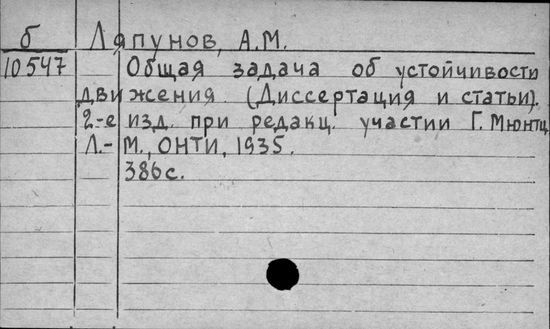 б Ляпунов, А.М.
10547 Общая задача об устойчивости
движения. (Диссертация и статьи).
2-е изд. при редакц. участии Г. Мюнтц
Л.-М., ОНТИ, 1935.
386с.